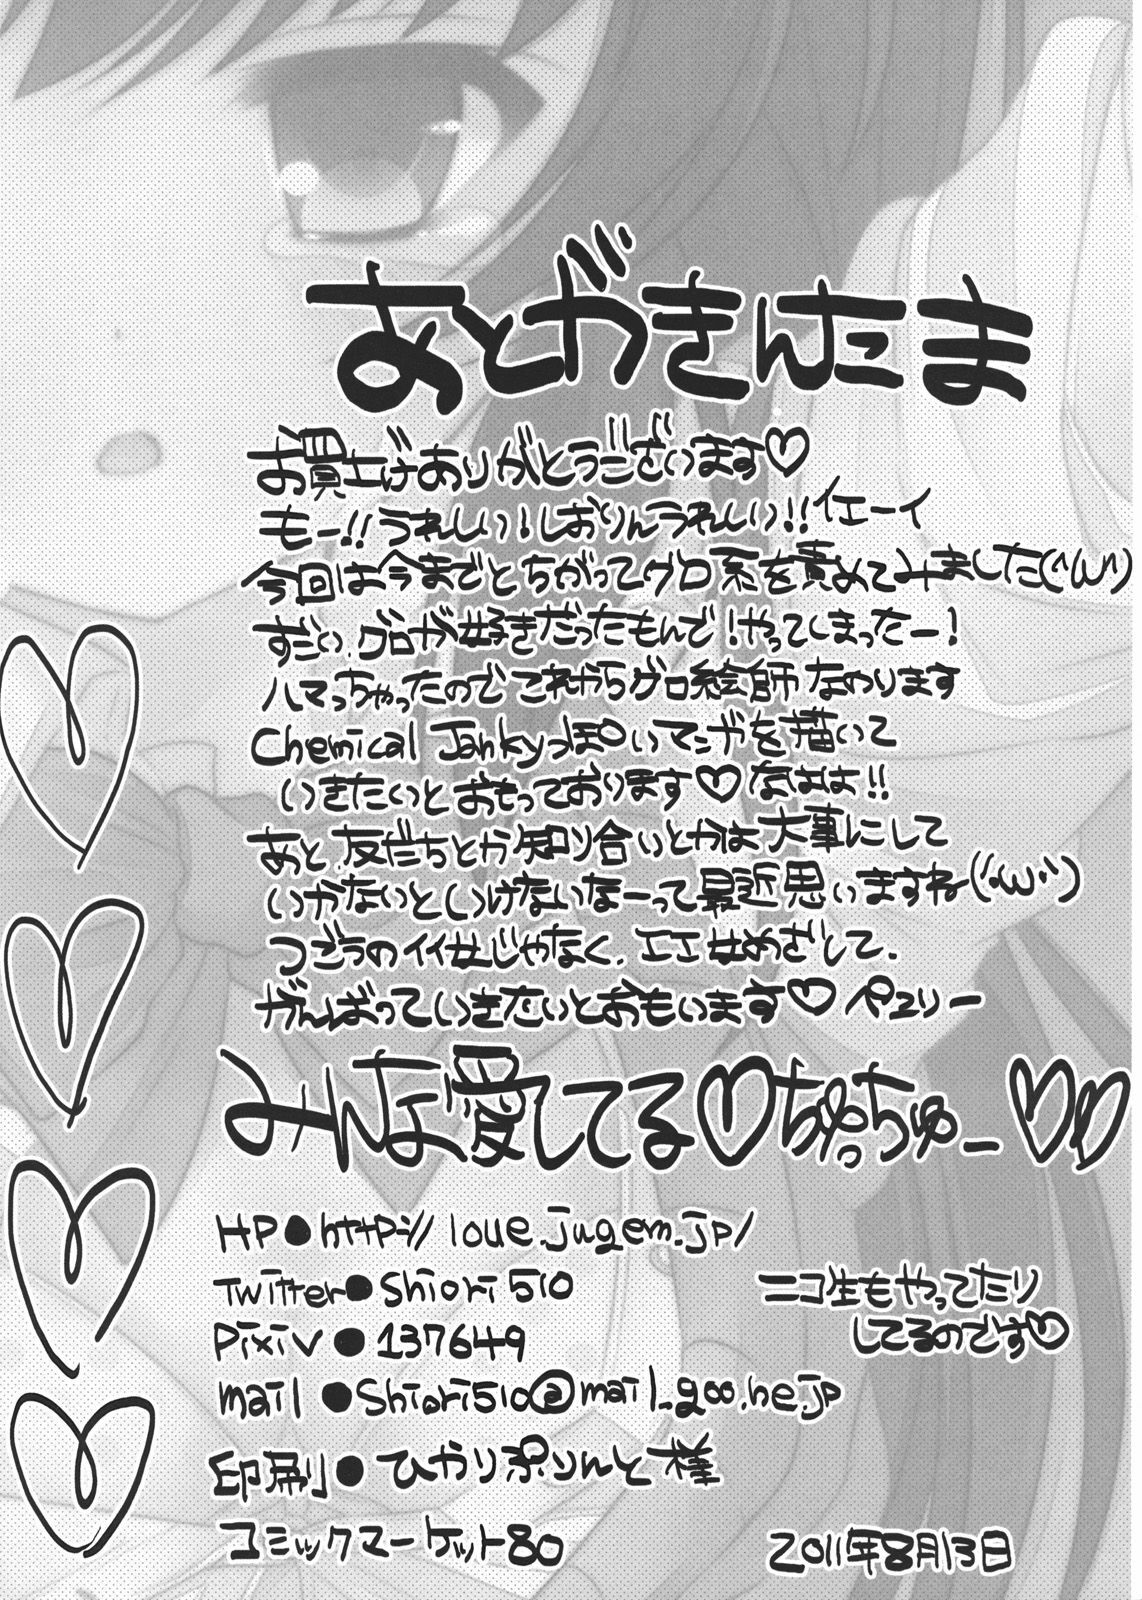 あとがきんたま
お買上げありがとうございます♡
もー!!うれしい!しおりんうれしい!!イエーイ
今回は今までとちがってグロ系を責めてみました(´･ω･`)
ずばい、グロが好きだったもんで!やってしまったー!
ハマっちゃったのでこれからグロ絵師なのります
Chemical Jankyっぽいマンガを描いて
いきたいとおもっております♡なはは!!
あと、友だちとか知り合いとかは大事にして
いかないといけないなーって最近思いますね(´･ω･`)
つごうのイイ女じゃなく、エエ女めざして、
がんばっていきたいとおもいます♡ペユリー
みんな愛してる♡ちゅっちゅー♡♡
HP●http://love.jugem.jp/
Twitter●Shiori510
Pixiv●137649
mail●Shiori510@mail.goo.ne.jp
ニコ生もやってたり
してるのです♡
印刷●ひかりぷりんと様
コミックマーケット80
2011年8月13日